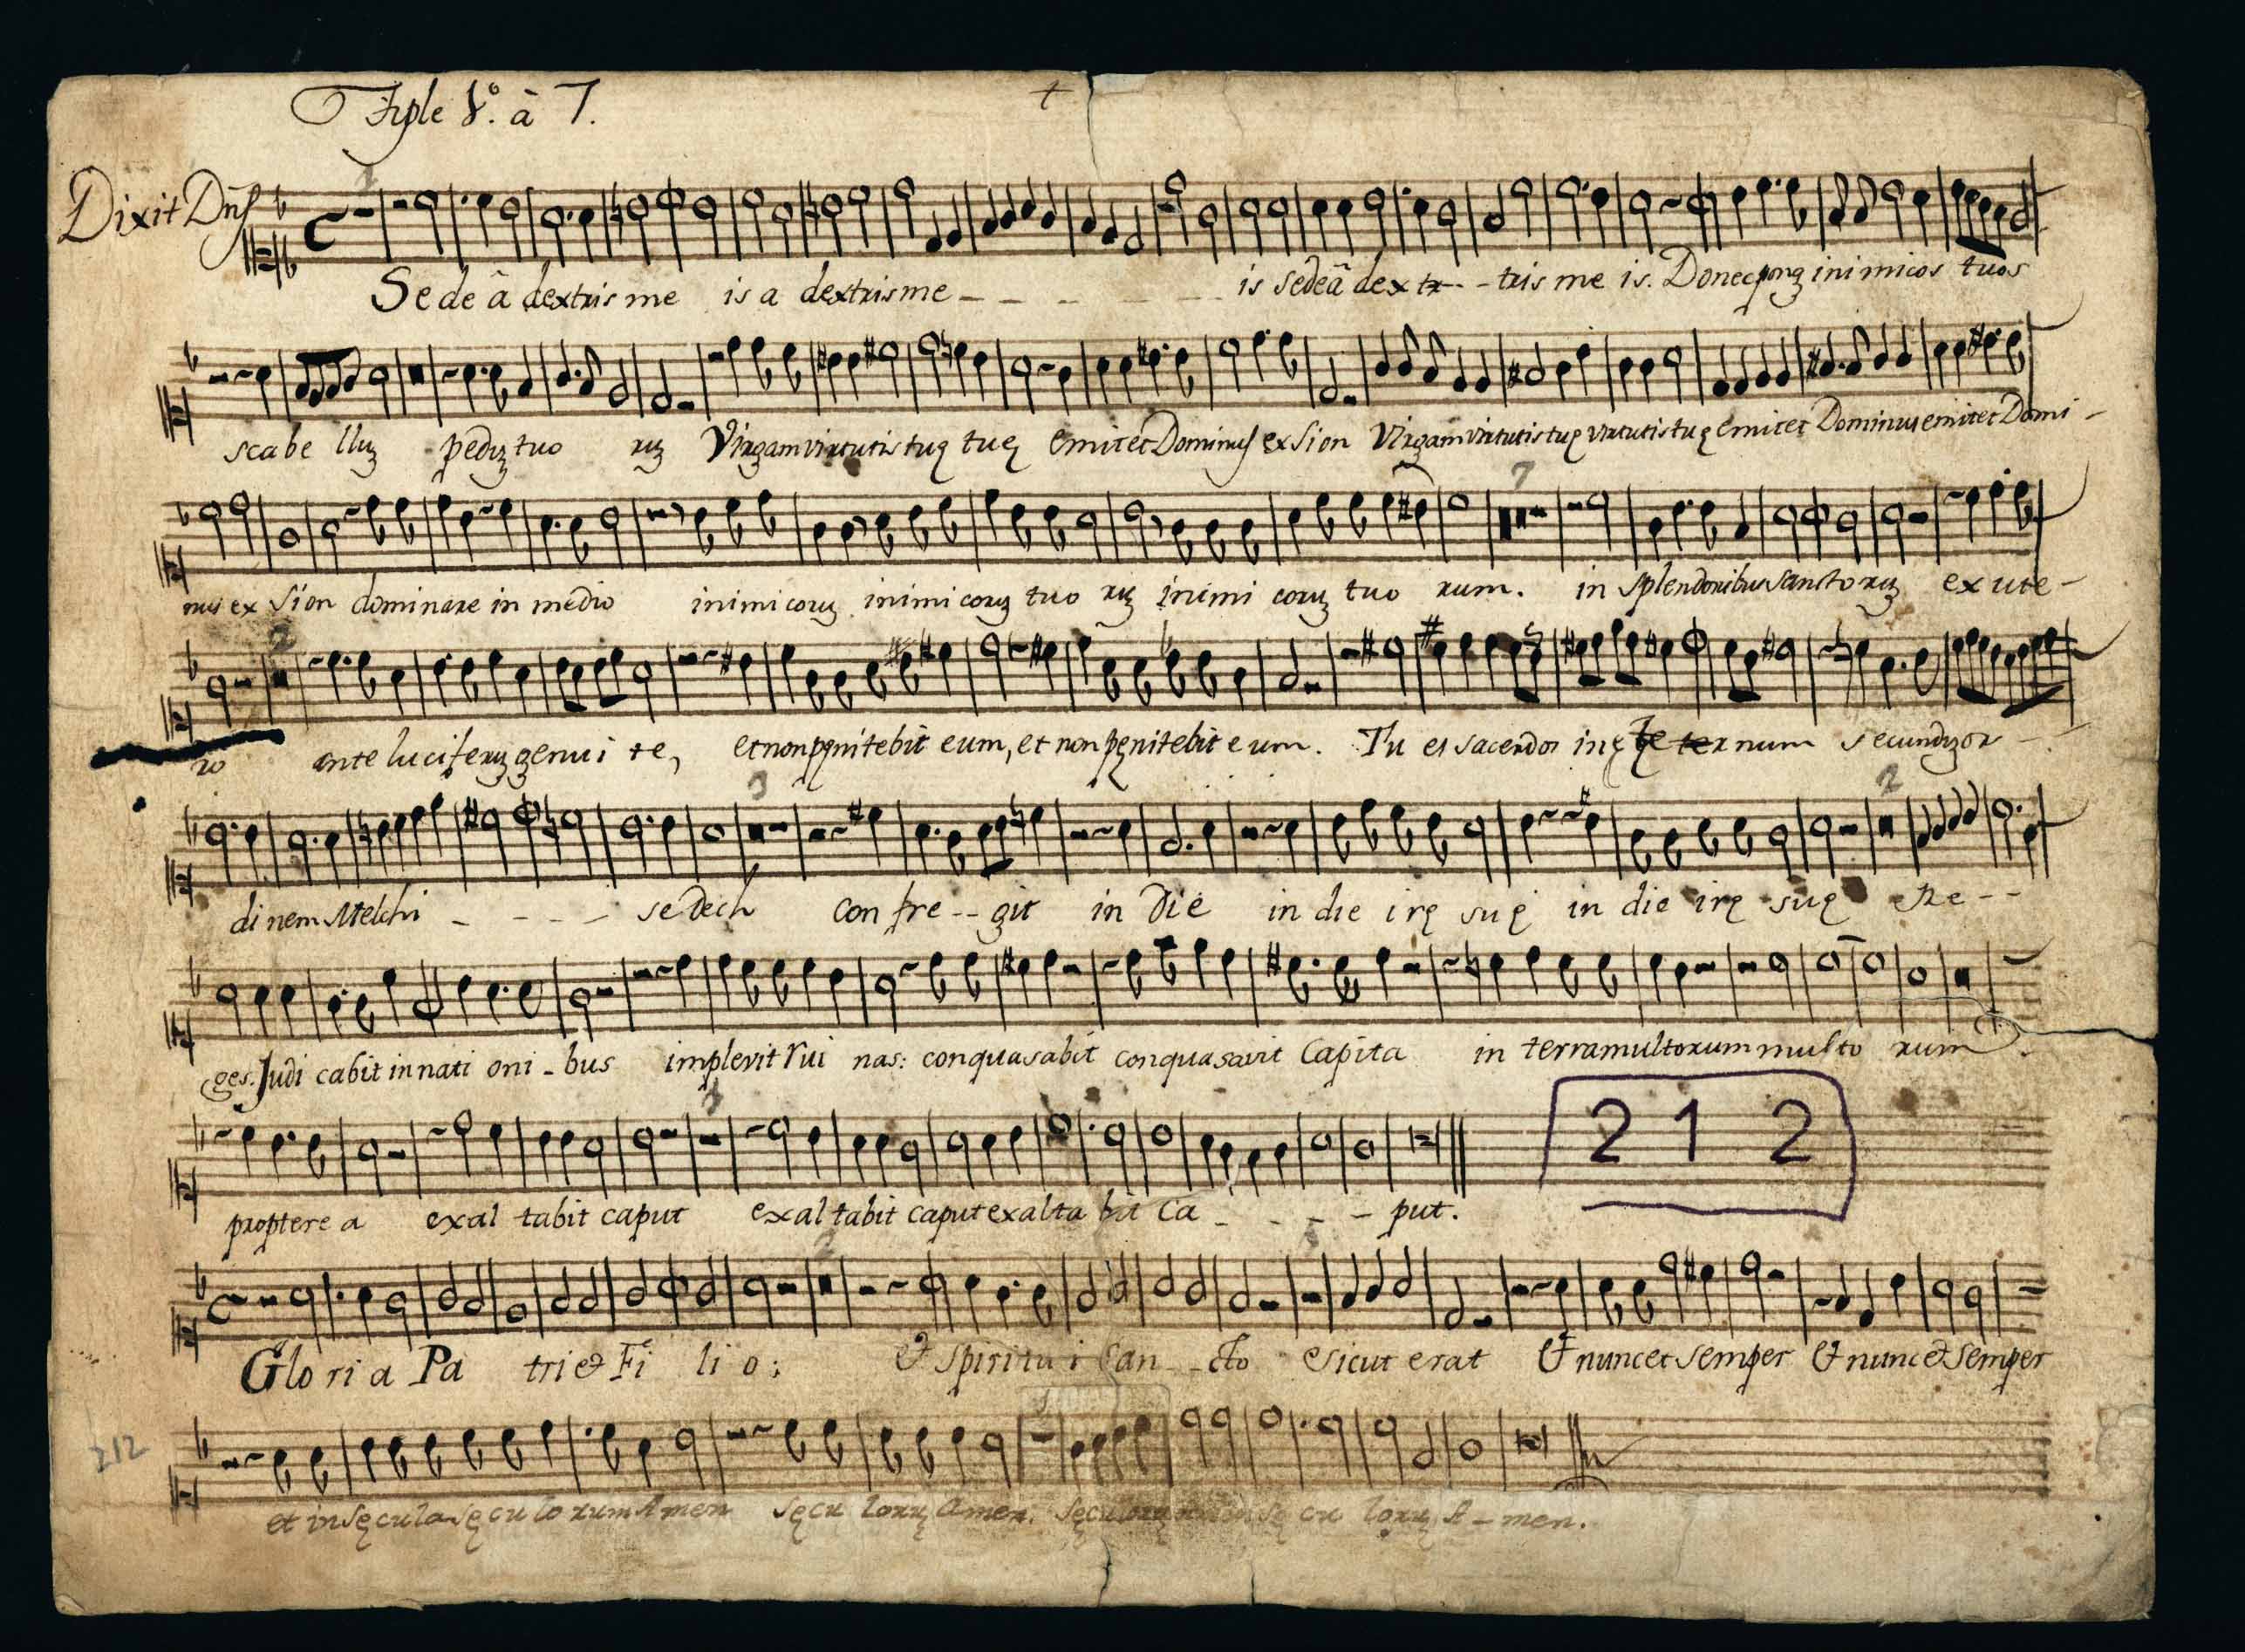 Tiple 1º. â 7.
+
Dixit Dñs
1
Sede â dextris me is a dextris me - - - - - is sede â dex tr - - tris me is. Donec ponã inimicos tuos
scabe lluʒ peduʒ tuo ruʒ Virgam virtutis tuę tuę emitet Dominus ex Sion Virgam virtutis tuę virtutis tuę emitet Dominus emitet Domi -
7
nus ex Sion dominare in medio inimicoruʒ inimicoruʒ tuo ruʒ inimi coruʒ tuo rum. in splendoribus sanctoruʒ ex ute -
2
ro ante luciferuʒ genui te, et non pęnitebit eum, et non pęnitebit eum. Tu es sacerdos in ę te ter num secunduʒ or -
3 2
di nem Melchi - - - - sedech Confre - - git in Die in die irę suę in die irę suę Re - -
ges. Judicabit in nationi - bus implevit rui nas: conquasabit conquasavit Capita in terra multorum multo rum.
1
2 1 2
propterea exaltabit caput exaltabit caput exalta bit Ca - - - - put.
2
Gloria Pa tri & Fi li o; & spiritu i San - - cto sicut erat & nunc et semper & nunc & semper
212
et in sęcula sęculorum Amen sęcu loruʒ Amen. sęculoruʒ Amen sę cu loruʒ A - men.